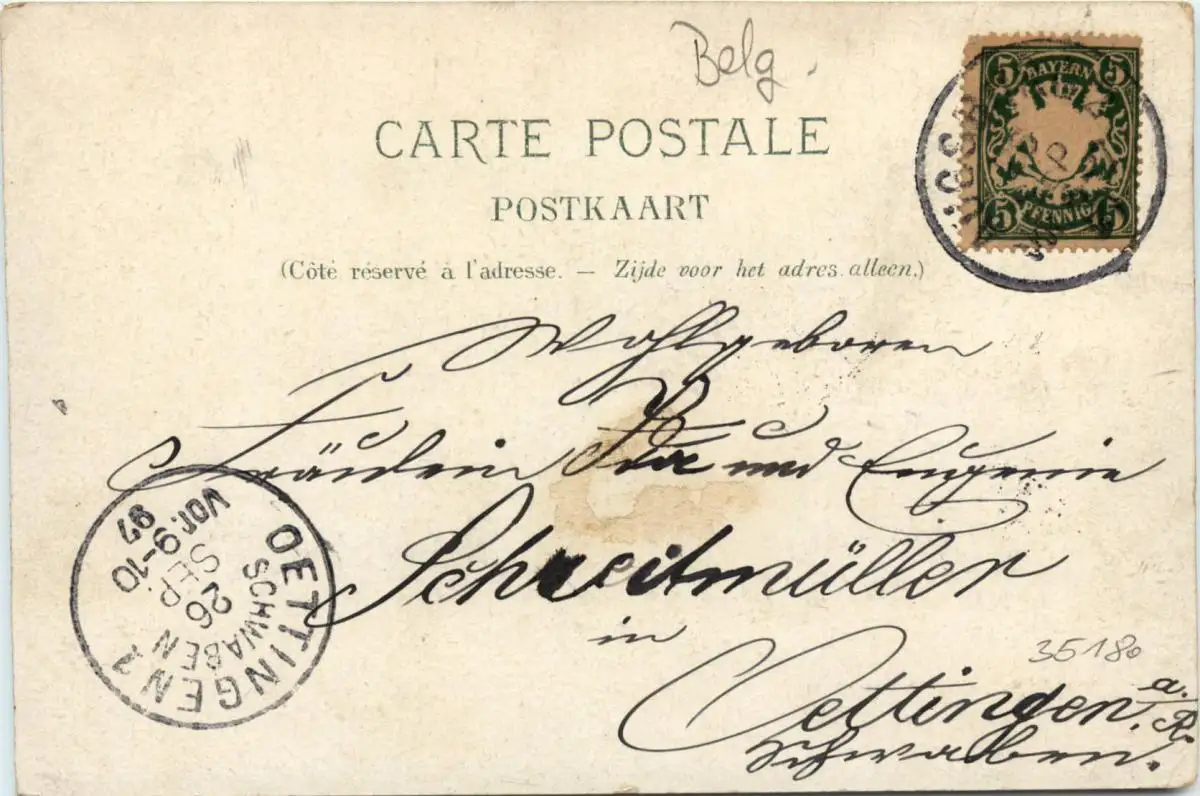 Belg.
5 BAYERN 5
5 PFENNIG 5
CARTE POSTALE
POSTKAART
(Côté réservé à l'adresse. — Zijde voor het adres alleen.)
Wohlgeboren
Fräulein und Eugenie
Schreitmüller
in
35180
Oettingen a./R.
Schwaben.
OETTINGEN 1
SCHWABEN
26
SEP.
VOR.9-10
97